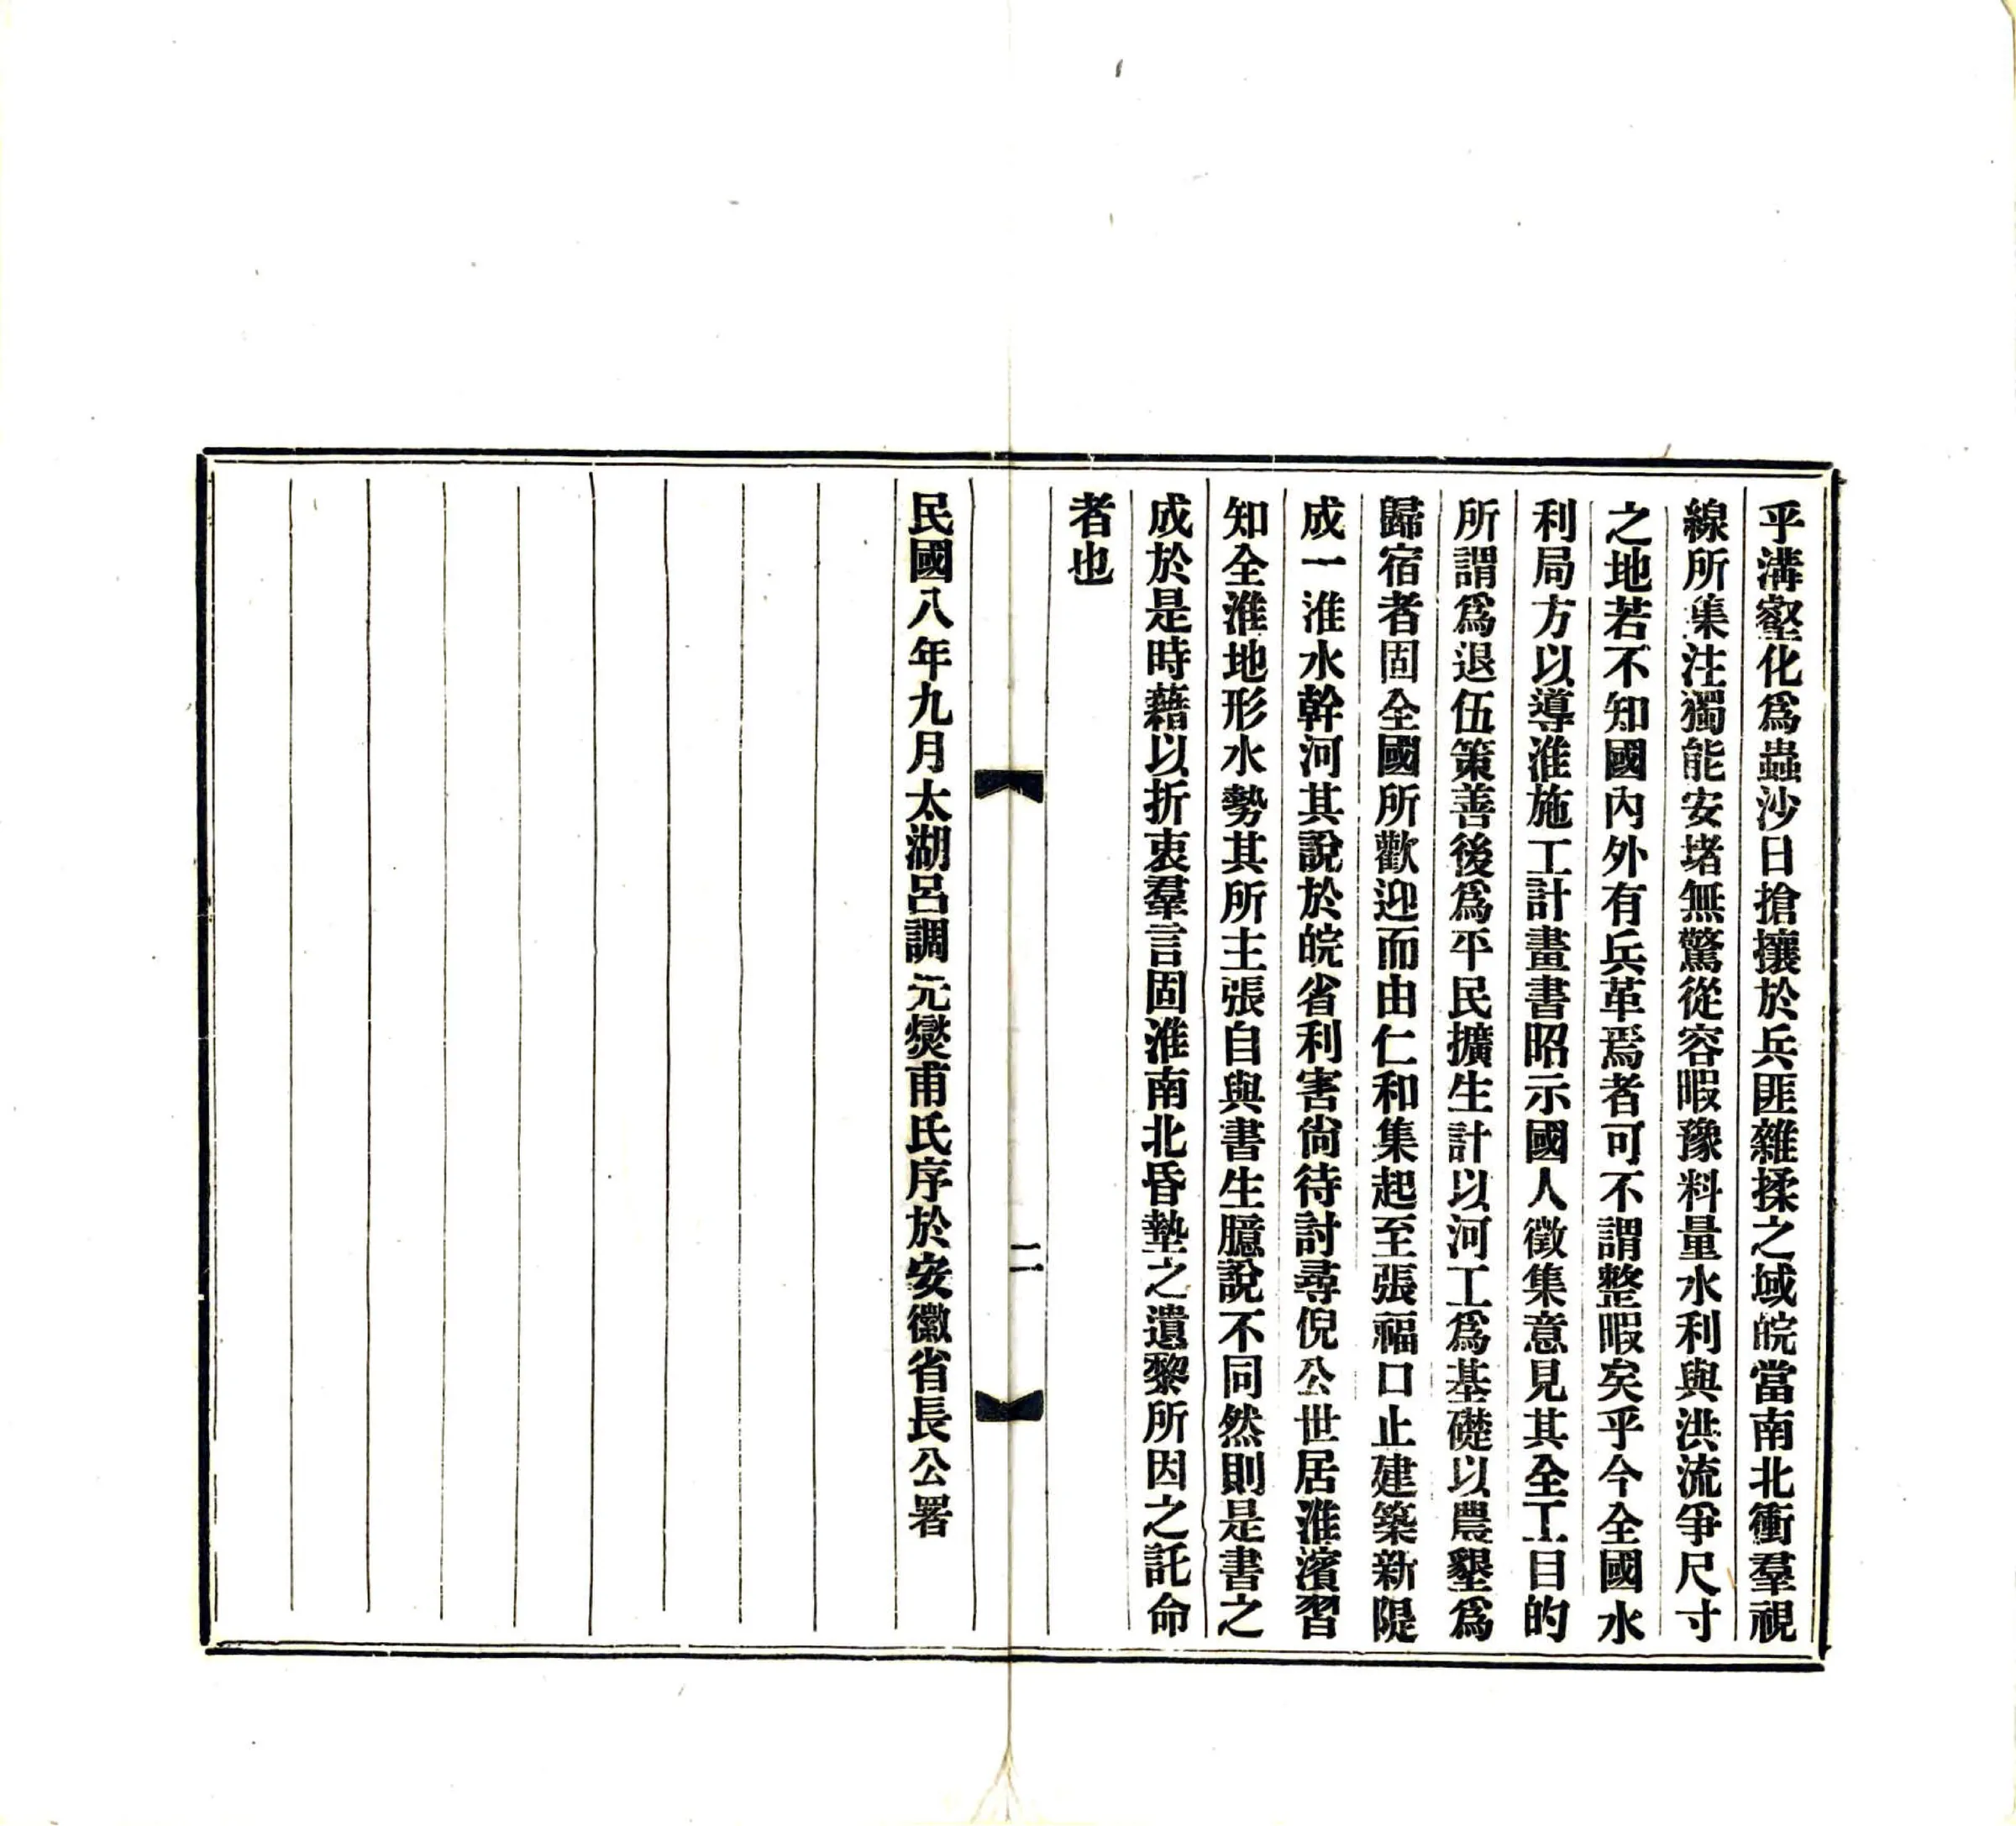 乎溝壑化爲蟲沙日搶攘於兵匪雜揉之域皖當南北衝羣視
線所集注獨能安堵無驚從容暇豫料量水利與洪流爭尺寸
之地若不知國內外有兵革焉者可不謂整暇矣乎今全國水
利局方以導淮施工計畫書昭示國人徵集意見其全工目的
所謂爲退伍策善後爲平民擴生計以河工爲基礎以農墾爲
歸宿者固全國所歡迎而由仁和集起至張福口止建築新隄
成一淮水幹河其說於皖省利害尙待討尋倪公世居淮濱習
知全淮地形水勢其所主張自與書生臆說不同然則是書之
成於是時藉以折衷羣言固淮南北昏墊之遺黎所因之託命
者也
二
民國八年九月太湖呂調元燮甫氏序於安徽省長公署